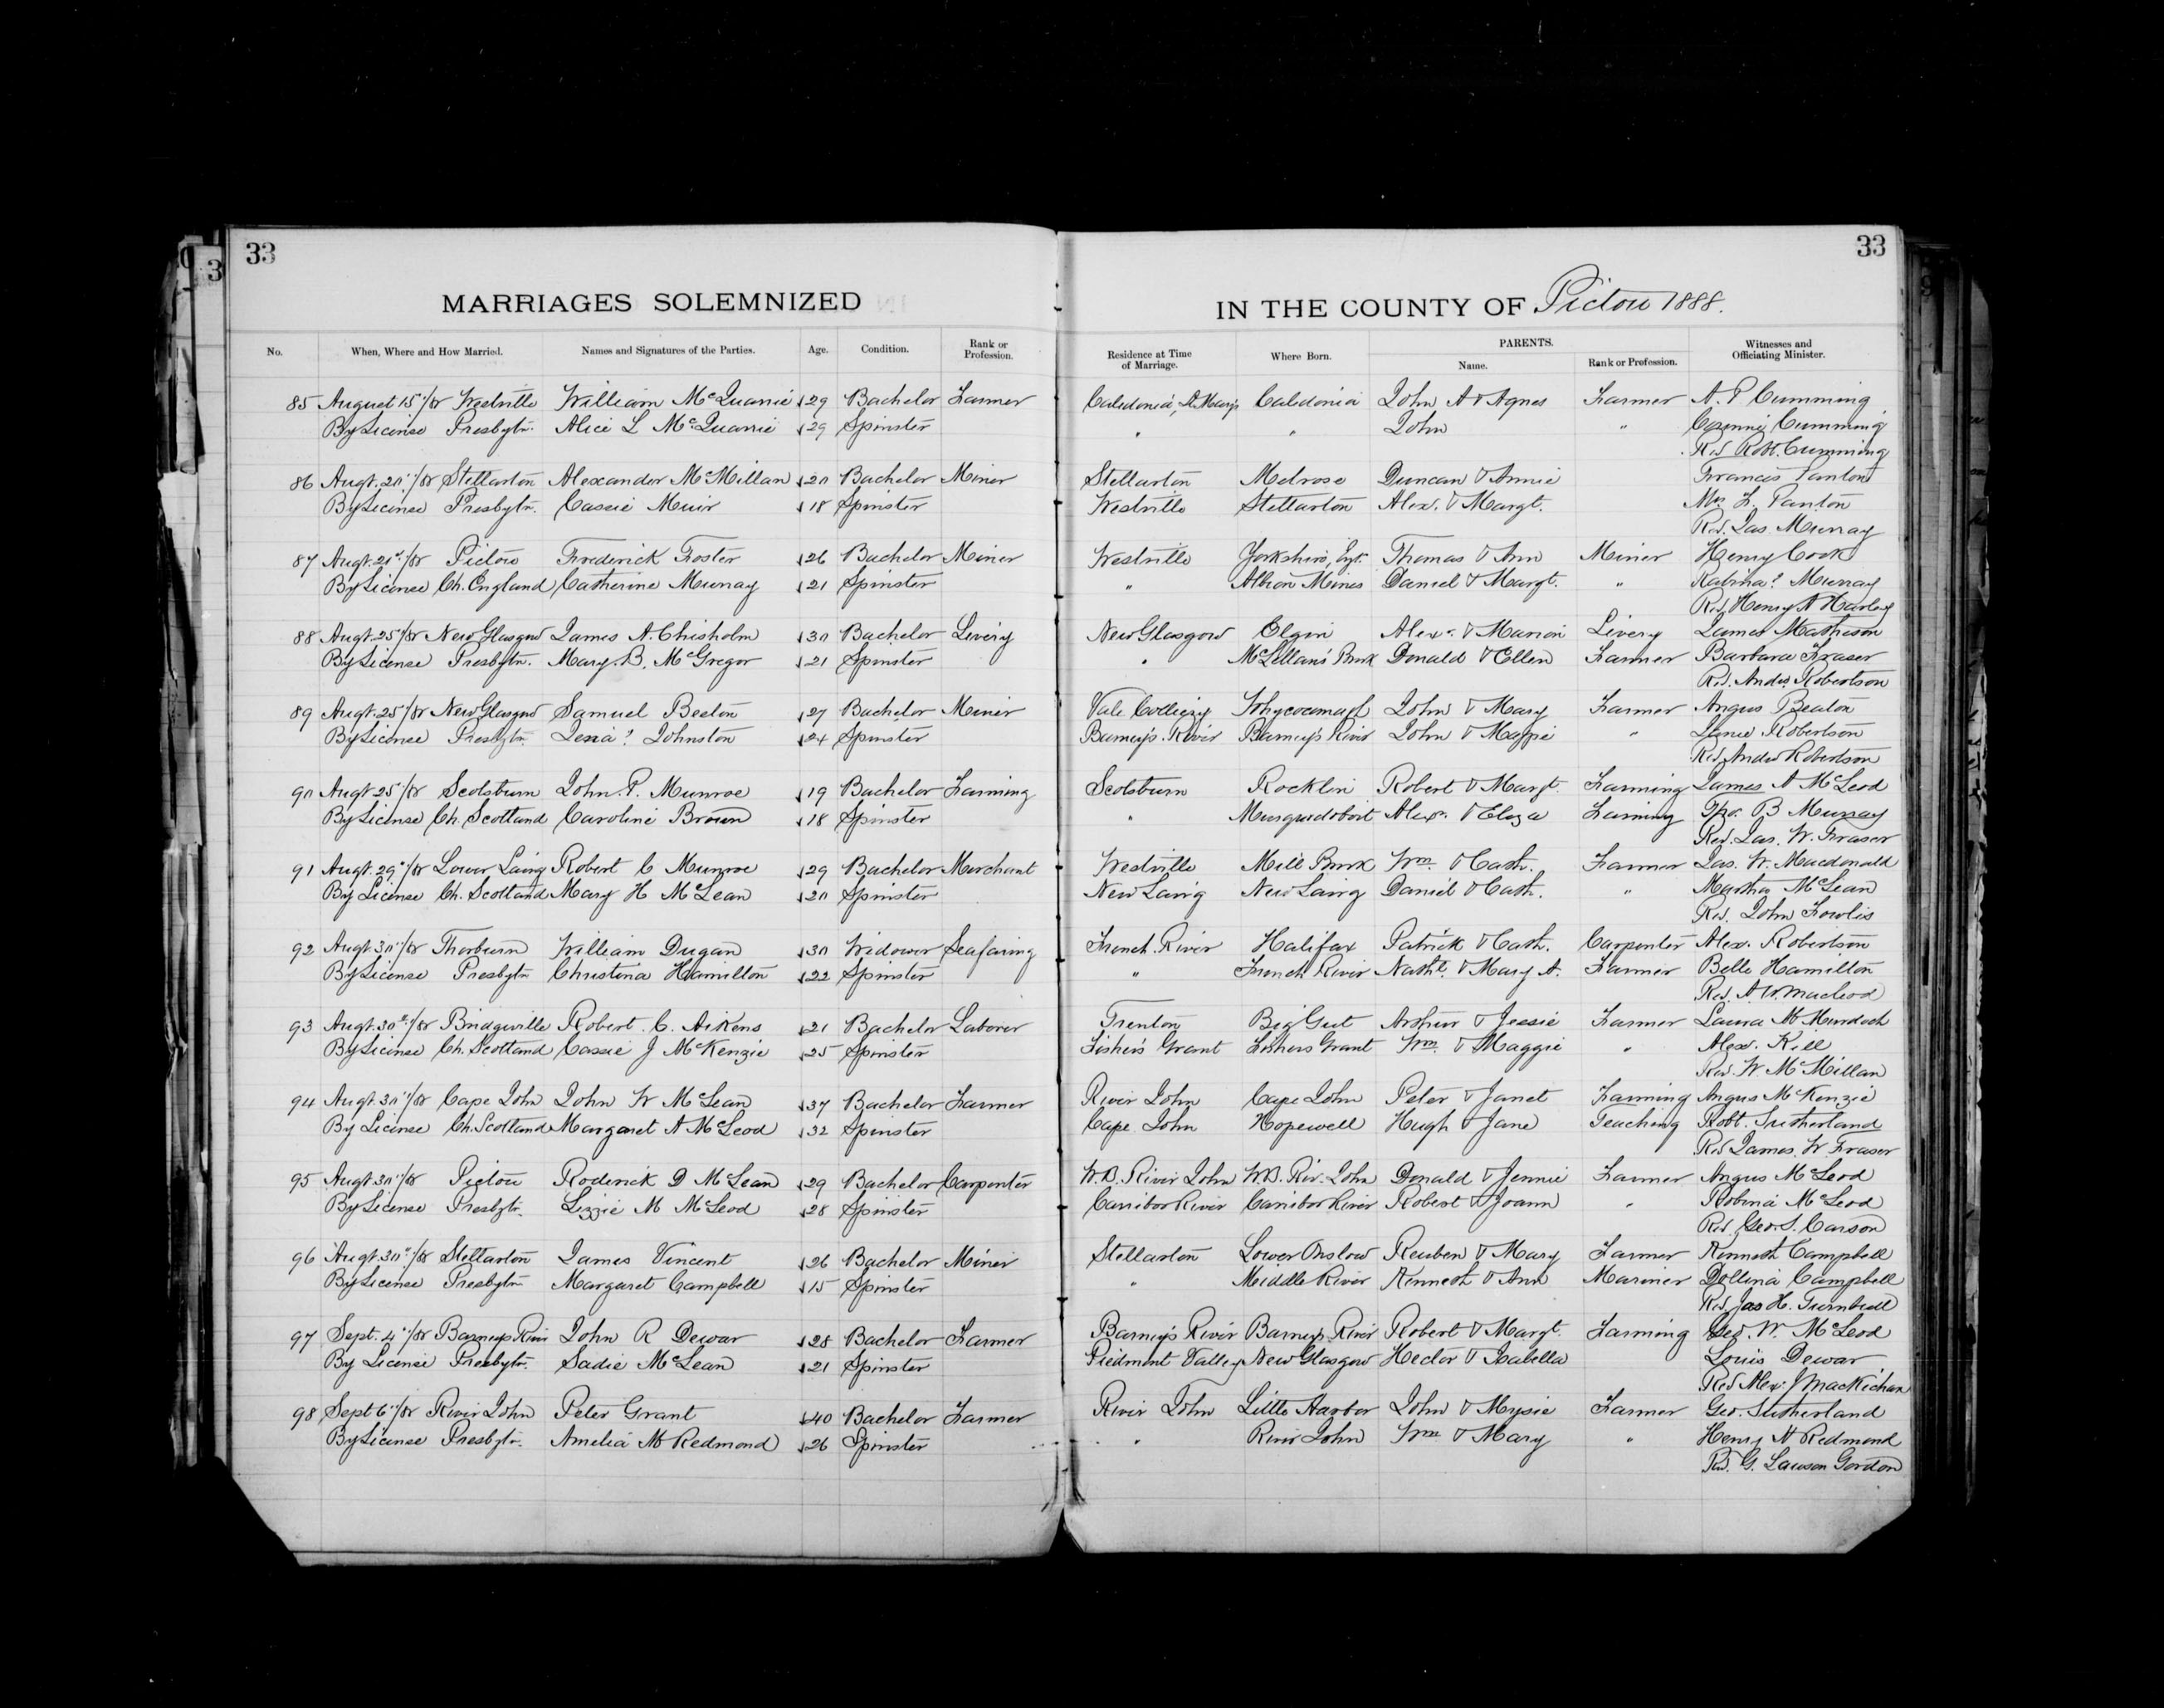 33
33
3
MARRIAGES SOLEMNIZED
IN THE COUNTY OF Pictou 1888.
No. When, Where and How Married. Names and Signatures of the Parties. Age. Condition. Rank or Profession. Residence at Time of Marriage. Where Born. PARENTS. Name. Rank or Profession. Witnesses and Officiating Minister.
85 August 15"/88 Westville William McQuarrie 29 Bachelor Farmer Caledonia, St. Mary's Caledonia John A & Agnes Farmer A. P Cumming
By License Presbytn. Alice L McQuarrie 29 Spinster " " John " Cumming
Rev Robt. Cumming
86 Augt. 20"/88 Stellarton Alexander McMillan 20 Bachelor Miner Stellarton Melrose Duncan & Annie Francis Panton
By License Presbytn. Cassie Muir 18 Spinster Westville Stellarton Alex. & Margt. Mrs F. Panton
Rev. Jas. Murray
87 Augt. 21st/88 Pictou Frederick Foster 26 Bachelor Miner Westville Yorkshire, Eng. Thomas & Ann Miner Henry Cook
By License Ch. England Catherine Murray 21 Spinster " Albion Mines Daniel & Margt. " Rabina? Murray
Rev. Henry A Harley
88 Augt. 25"/88 New Glasgow James A. Chisholm 30 Bachelor Livery New Glasgow Elgin Alex. & Marion Livery James Matheson
By License Presbytn. Mary. B. McGregor 21 Spinster " McLellan's Brook Donald & Ellen Farmer Barbara Fraser
Rev. Andw. Robertson
89 Augt. 25"/88 New Glasgow Samuel Beeton 27 Bachelor Miner Vale Colliery Whycocomagh John & Mary Farmer Angus Beaton
By License Presbytn. Lena? Johnston 24 Spinster Barney's River Barney's River John & Maggie " Robertson
Rev. Andw Robertson
90 Augt. 25"/88 Scotsburn John. P. Munroe 19 Bachelor Farming Scotsburn Rocklin Robert & Margt. Farming James A McLeod
By License Ch. Scotland Caroline Brown 18 Spinster " Musquodoboit Alex. & Eliza Farming B Murray
Rev. Jas. W. Fraser
91 Augt. 29"/88 Lower Lairg Robert C Munroe 29 Bachelor Merchant Westville Mill Brook Wm. & Cath. Farmer Jas. W. Macdonald
By License Ch. Scotland Mary H McLean 20 Spinster New Lairg New Lairg Daniel & Cath. " Martha McLean
Rev. John Fowlis
92 Augt. 30"/88 Thorburn William Dugan 30 Widower Seafaring French River Halifax Patrick & Cath. Carpenter Alex. Robertson
By License Presbytn Christina Hamilton 22 Spinster " French River Nathl. & Mary A. Farmer Belle Hamilton
Rev. A. W. Macleod
93 Augt. 30th/88 Bridgeville Robert. C. Aikens 21 Bachelor Laborer Trenton Big Gut Arthur & Jessie Farmer Laura M Murdoch
By License Ch. Scotland Cassie J McKenzie 25 Spinster Fisher's Grant Fishers Grant Wm. & Maggie " Alex. Kell
Rev. W. McMillan
94 Augt. 30"/88 Cape John John W McLean 37 Bachelor Farmer River John Cape John Peter & Janet Farming Angus McKenzie
By License Ch. Scotland Margaret A McLeod 32 Spinster Cape John Hopewell Hugh & Jane Teaching Robt. Sutherland
Rev James. W. Fraser
95 Augt. 30"/88 Pictou Roderick D McLean 29 Bachelor Carpenter W. B. River John W. B. Riv. John Donald & Jennie Farmer Angus McLeod
By License Presbytn. Lizzie M McLeod 28 Spinster Carribor River Carribor River Robert & Joann " Robina McLeod
Rev. Geo. S. Carson
96 Augt. 30"/88 Stellarton James Vincent 26 Bachelor Miner Stellarton Lower Onslow Reuben & Mary Farmer Kenneth Campbell
By License Presbytn Margaret Campbell 15 Spinster " Middle River Kenneth & Ann Mariner Dollina Campbell
Rev. Jas H. Turnbull
97 Sept. 4"/88 Barneys River John R Dewar 28 Bachelor Farmer Barney's River Barney's River Robert & Margt. Farming Geo. W. McLeod
By License Presbytn. Sadie McLean 21 Spinster Piedmont Valley New Glasgow Hector & Isabella Louis Dewar
Rev Alex. J MacKichan
98 Sept 6"/88 River John Peter Grant 40 Bachelor Farmer River John Little Harbor John & Mysie Farmer Geo. Sutherland
By License Presbytn. Amelia M Redmond 26 Spinster " River John Wm & Mary " Henry A Redmond
Rev. G. Lawson Gordon